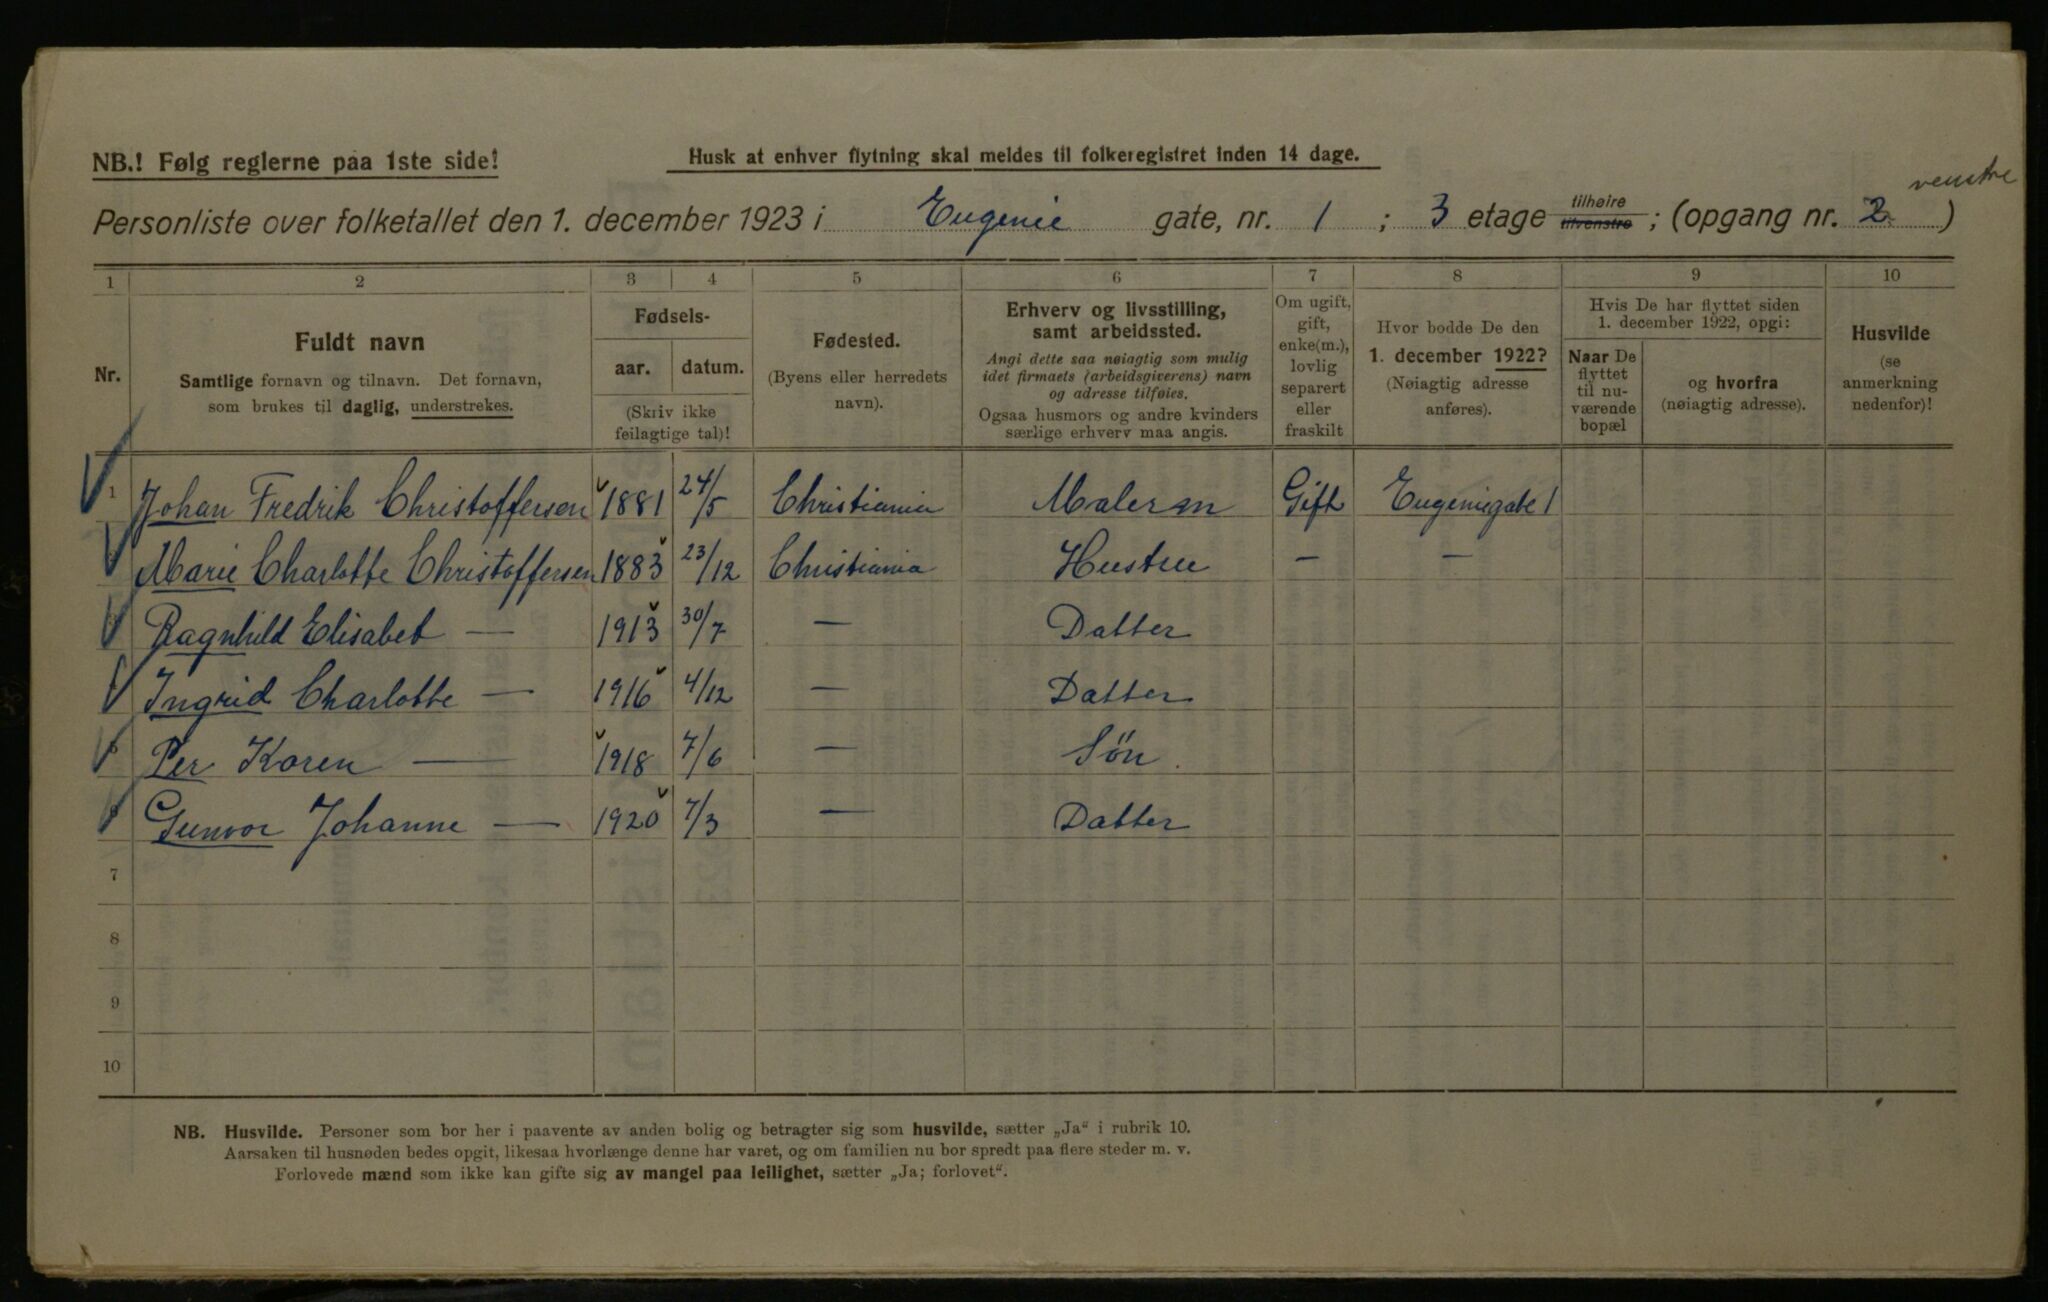 NB.! Følg reglerne paa 1ste side!
Husk at enhver flytning skal meldes til folkeregistret inden 14 dage.
venstre
Personliste over folketallet den 1. december 1923 i Eugenie gate, nr. 1 ; 3 etage tilhøire tilvenstre ; (opgang nr. 2 )
1 2 3 4 5 6 7 8 9 10
Nr.
Fuldt navn
Samtlige fornavn og tilnavn. Det fornavn,
som brukes til daglig, understrekes.
Fødsels-
aar. datum.
(Skriv ikke
feilagtige tal)!
Fødested.
(Byens eller herredets
navn).
Erhverv og livsstilling,
samt arbeidssted.
Angi dette saa nøiagtig som mulig
idet firmaets (arbeidsgiverens) navn
og adresse tilføies.
Ogsaa husmors og andre kvinders
særlige erhverv maa angis.
Om ugift,
gift,
enke(m.),
lovlig
separert
eller
fraskilt
Hvor bodde De den
1. december 1922?
(Nøiagtig adresse
anføres).
Hvis De har flyttet siden
1. december 1922, opgi:
Naar De
flyttet
til nu-
værende
bopæl
og hvorfra
(nøiagtig adresse).
Husvilde
(se
anmerkning
nedenfor)!
1 Johan Fredrik Christoffersen 1881 24/5 Christiania Malerm Gift Eugeniegate 1
Marie Charlotte Christoffersen 1883 23/12 Christiania Hustru — —
Ragnhild Elisabet — 1913 30/7 — Datter
Ingrid Charlotte — 1916 4/12 — Datter
Per Koren — 1918 7/6 — Søn
Gunvor Johanne — 1920 7/3 — Datter
7
8
9
10
NB. Husvilde. Personer som bor her i paavente av anden bolig og betragter sig som husvilde, sætter „Ja“ i rubrik 10.
Aarsaken til husnøden bedes opgit, likesaa hvorlænge denne har varet, og om familien nu bor spredt paa flere steder m. v.
Forlovede mænd som ikke kan gifte sig av mangel paa leilighet, sætter „Ja; forlovet“.